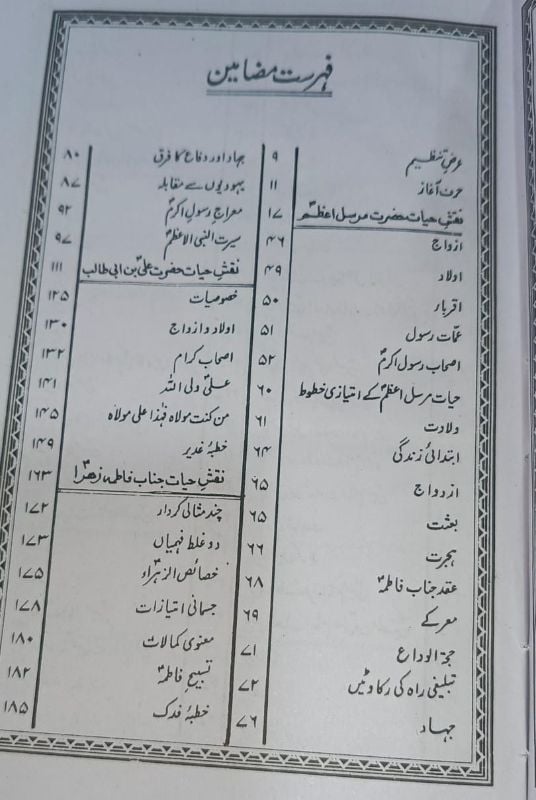 فہرست مضامین
عرض تنظیم ۹
حرف آغاز ۱۱
نقش حیات حضرت مرسل اعظمؐ ۱۷
ازواج ۴۶
اولاد ۴۹
اقربار ۵۰
عمّات رسول ۵۱
اصحاب رسول اکرمؐ ۵۲
حیات مرسل اعظمؐ کے امتیازی خطوط ۶۰
ولادت ۶۱
ابتدائی زندگی ۶۴
ازدواج ۶۵
بعثت ۶۵
ہجرت ۶۶
عقد جناب فاطمہؑ ۶۸
معرکے ۶۹
حجۃ الوداع ۷۱
تبلیغی راہ کی رکاوٹیں ۷۲
جہاد ۷۶
جہاد اور دفاع کا فرق ۸۰
یہودیوں سے مقابلہ ۸۷
معراج رسول اکرمؐ ۹۲
سیرت النبی الاعظمؐ ۹۷
نقش حیات حضرت علیؑ بن ابی طالب ۱۱۱
خصوصیات ۱۲۵
اولاد و ازدواج ۱۳۰
اصحاب کرام ۱۳۲
علیؑ ولی اللہ ۱۴۱
من کنت مولاہ فہٰذا علی مولاہ ۱۴۵
خطبۂ غدیر ۱۴۹
نقش حیات جناب فاطمہ زھراؑ ۱۶۳
چند مثالی کردار ۱۷۲
دو غلط فہمیاں ۱۷۳
خصائص الزہراءؑ ۱۷۵
جسمانی امتیازات ۱۷۸
معنوی کمالات ۱۸۰
تسبیح فاطمہؑ ۱۸۲
خطبۂ فدک ۱۸۵